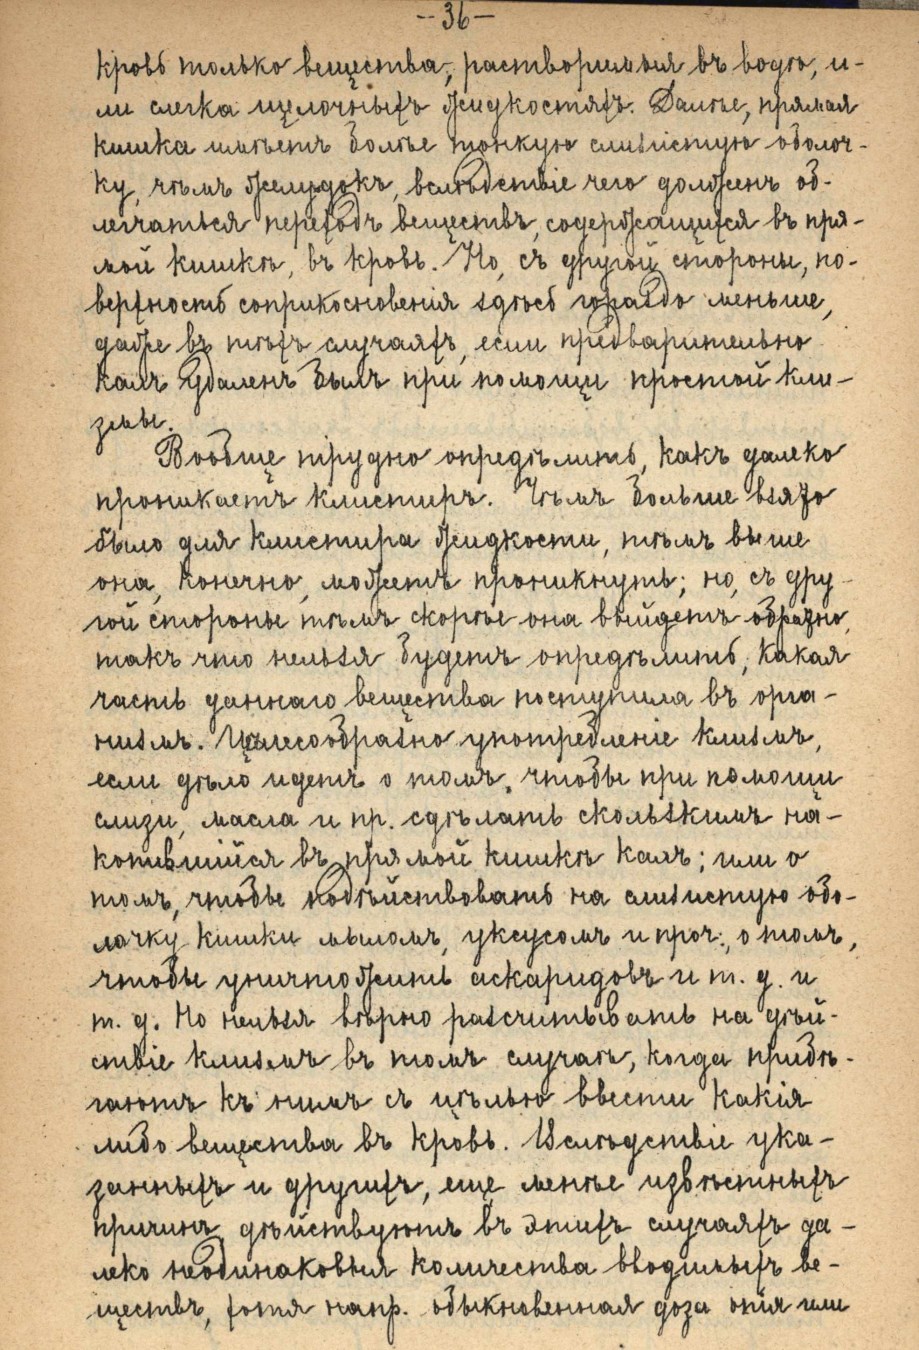 -36-
кровь только вещества, растворимыя въ водѣ, и-
ли слегка щелочныхъ жидкостяхъ. Далѣе, прямая
кишка имѣетъ болѣе тонкую слизистую оболоч-
ку, чѣмъ желудокъ, вслѣдствіе чего долженъ об-
легчаться переходъ веществъ, содержащихся въ пря-
мой кишкѣ, въ кровь. Но, съ другой стороны, по-
верхность соприкосновенія здѣсь гораздо меньше,
даже въ тѣхъ случаяхъ, если предварительно
калъ удаленъ былъ при помощи простой кли-
змы.
Вообще трудно опредѣлить, какъ далеко
проникаетъ клистиръ. Чѣмъ больше взято
было для клистира жидкости, тѣмъ выше
она, конечно, можетъ проникнуть; но, съ дру-
гой стороны тѣмъ скорѣе она выйдетъ обратно,
такъ что нельзя будетъ опредѣлить, какая
часть даннаго вещества поступила въ орга-
низмъ. Цѣлесообразно употребленіе клизмъ,
если дѣло идетъ о томъ, чтобы при помощи
слизи, масла и пр. сдѣлать скользкимъ на-
копившійся въ прямой кишкѣ калъ; или о
томъ, чтобы подѣйствовать на слизистую обо-
лочку кишки мыломъ, уксусомъ и проч., о томъ,
чтобы уничтожить аскаридовъ и т. д. и
т. д. Но нельзя вѣрно разсчитывать на дѣй-
ствіе клизмъ въ томъ случаѣ, когда прибѣ-
гаютъ къ нимъ съ цѣлью ввести какія
либо вещества въ кровь. Вслѣдствіе ука-
занныхъ и другихъ, еще менѣе извѣстныхъ
причинъ, дѣйствуютъ въ этихъ случаяхъ да-
леко неодинаковыя количества вводимыхъ ве-
ществъ, хотя напр. обыкновенная доза опія или